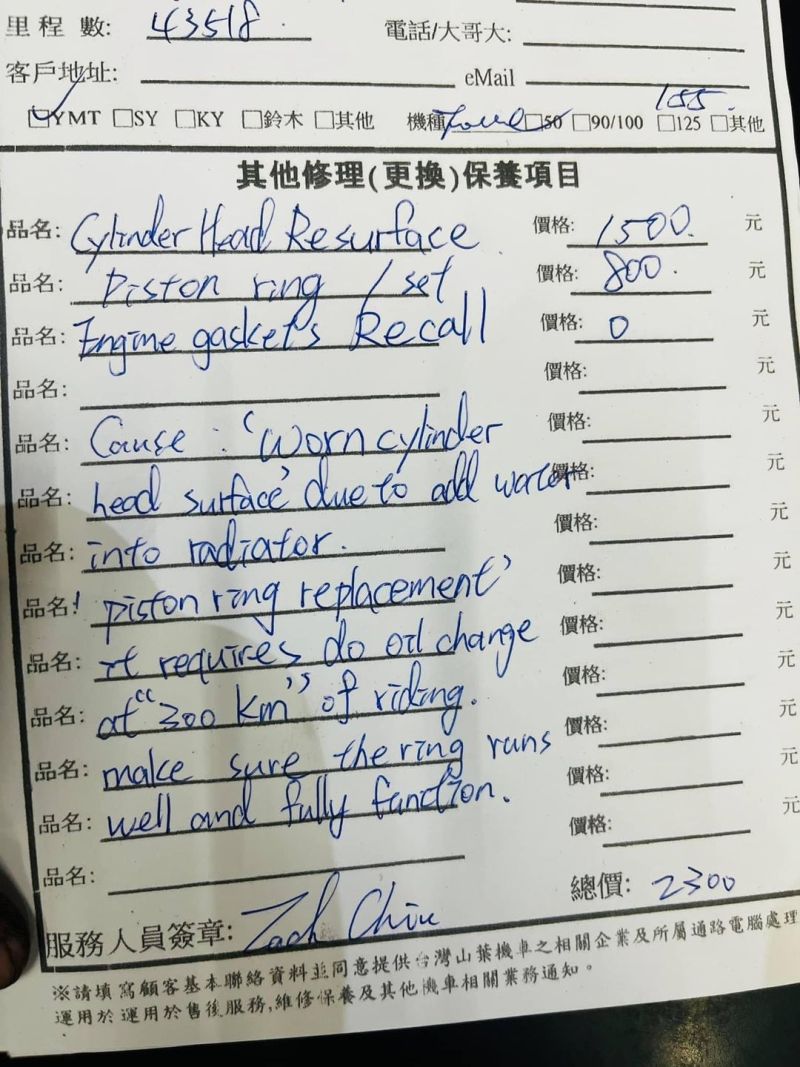 里程數: 43518. 電話/大哥大:
客戶地址: eMail
155.
☑YMT □SY □KY □鈴木 □其他 機種 Force □50 □90/100 □125 □其他
其他修理(更換)保養項目
品名: Cylinder Head Resurface 價格: 1500. 元
品名: Piston ring / set 價格: 800. 元
品名: Engine gasket's Recall 價格: 0 元
品名: 價格: 元
品名: Cause : 'Worn cylinder 價格: 元
品名: head surface' due to add water 價格: 元
品名: into radiator. 價格: 元
品名: ! piston ring replacement' 價格: 元
品名: it requires do oil change 價格: 元
品名: at "300 km" of riding. 價格: 元
品名: make sure the ring runs 價格: 元
品名: well and fully function. 價格: 元
品名: 總價: 2300
服務人員簽章: Zach Chiu
※請填寫顧客基本聯絡資料並同意提供台灣山葉機車之相關企業及所屬通路電腦處理
運用於運用於售後服務,維修保養及其他機車相關業務通知。